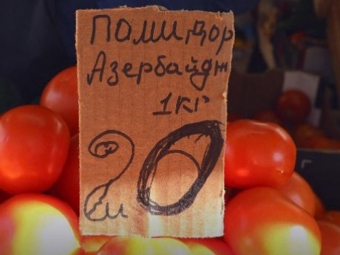 Помидор
Азербайдж
1кг
20